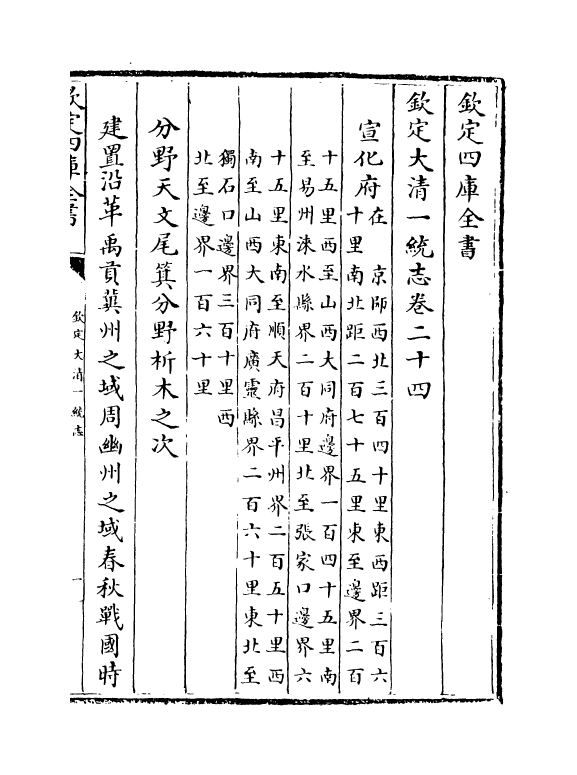 欽定四庫全書
欽定大清一統志卷二十四
宣化府
在 京師西北三百四十里東西距三百六
十里南北距二百七十五里東至邊界二百
十五里西至山西大同府邊界一百四十五里南
至易州淶水縣界二百十里北至張家口邊界六
十五里東南至順天府昌平州界二百五十里西
南至山西大同府廣靈縣界二百六十里東北至
獨石口邊界三百十里西
北至邊界一百六十里
分野天文尾箕分野析木之次
建置沿革禹貢冀州之域周幽州之域春秋戰國時
欽定四庫全書
欽定大清一統志
一